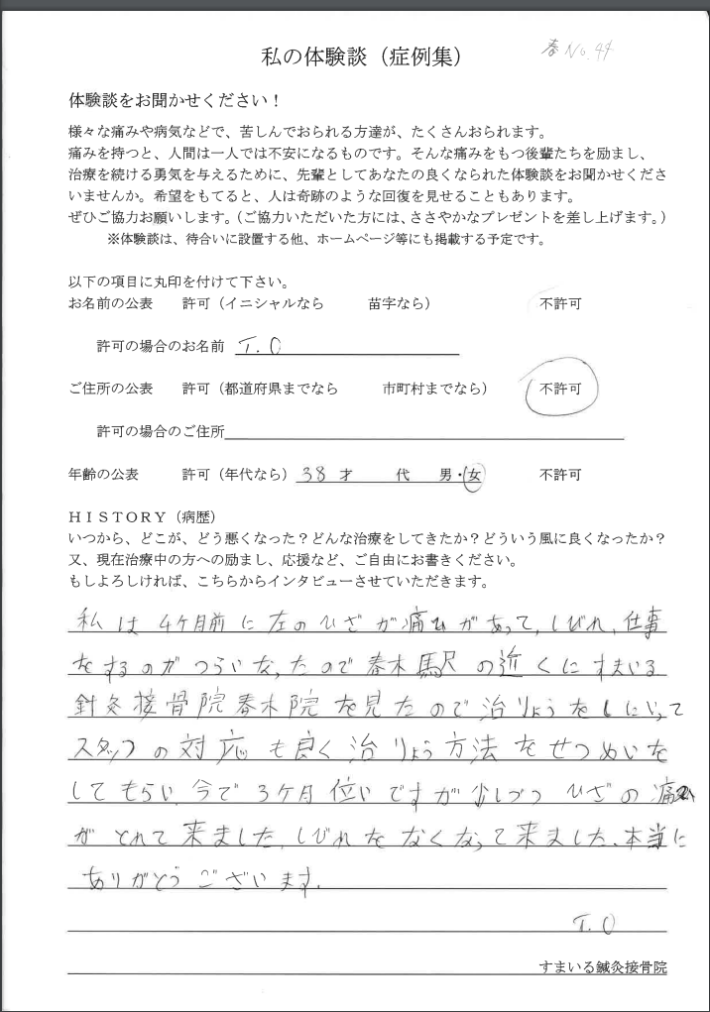 春No.44
私の体験談（症例集）
体験談をお聞かせください！
様々な痛みや病気などで、苦しんでおられる方達が、たくさんおられます。
痛みを持つと、人間は一人では不安になるものです。そんな痛みをもつ後輩たちを励まし、
治療を続ける勇気を与えるために、先輩としてあなたの良くなられた体験談をお聞かせくださ
いませんか。希望をもてると、人は奇跡のような回復を見せることもあります。
ぜひご協力お願いします。（ご協力いただいた方には、ささやかなプレゼントを差し上げます。）
※体験談は、待合いに設置する他、ホームページ等にも掲載する予定です。
以下の項目に丸印を付けて下さい。
お名前の公表　許可（イニシャルなら　苗字なら）　不許可
許可の場合のお名前　T.O
ご住所の公表　許可（都道府県までなら　市町村までなら）　不許可
許可の場合のご住所
年齢の公表　許可（年代なら）38才　代　男・女　不許可
ＨＩＳＴＯＲＹ（病歴）
いつから、どこが、どう悪くなった？どんな治療をしてきたか？どういう風に良くなったか？
又、現在治療中の方への励まし、応援など、ご自由にお書きください。
もしよろしければ、こちらからインタビューさせていただきます。
私は4ケ月前に左のひざが痛みがあって、しびれ、仕事
をするのがつらいなったので春木駅の近くにすまいる
針灸接骨院春木院を見たので治りょうをしにいって
スタッフの対応も良く治りょう方法をせつめいを
してもらい、今で3ケ月位いですが少しづつひざの痛み
がとれて来ました。しびれをなくなって来ました。本当に
ありがとうございます。
T.O
すまいる鍼灸接骨院